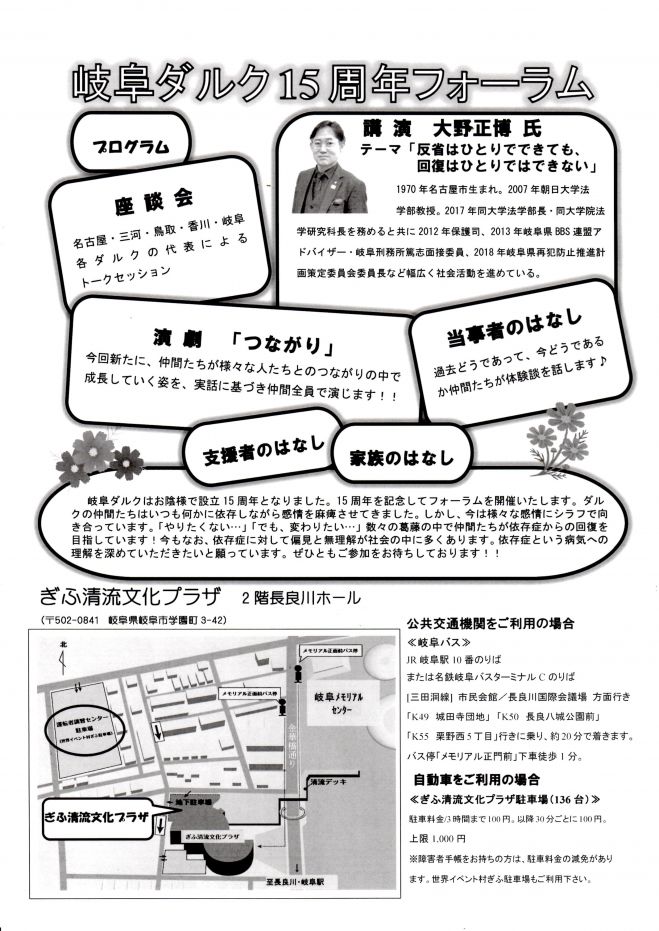 岐阜ダルク15周年フォーラム
プログラム
座談会
名古屋・三河・鳥取・香川・岐阜
各ダルクの代表による
トークセッション
講演 大野正博 氏
テーマ「反省はひとりでできても、
回復はひとりではできない」
1970年名古屋市生まれ。2007年朝日大学法
学部教授。2017年同大学法学部長・同大学院法
学研究科長を務めると共に2012年保護司、2013年岐阜県BBS連盟ア
ドバイザー・岐阜刑務所篤志面接委員、2018年岐阜県再犯防止推進計
画策定委員会委員長など幅広く社会活動を進めている。
演劇 「つながり」
今回新たに、仲間たちが様々な人たちとのつながりの中で
成長していく姿を、実話に基づき仲間全員で演じます！！
当事者のはなし
過去どうであって、今どうである
か仲間たちが体験談を話します♪
支援者のはなし
家族のはなし
岐阜ダルクはお陰様で設立15周年となりました。15周年を記念してフォーラムを開催いたします。ダル
クの仲間たちはいつも何かに依存しながら感情を麻痺させてきました。しかし、今は様々な感情にシラフで向
き合っています。「やりたくない…」「でも、変わりたい…」数々の葛藤の中で仲間たちが依存症からの回復を
目指しています！今もなお、依存症に対して偏見と無理解が社会の中に多くあります。依存症という病気への
理解を深めていただきたいと願っています。ぜひともご参加をお待ちしております！！
ぎふ清流文化プラザ 2階長良川ホール
（〒502-0841 岐阜県岐阜市学園町3-42）
北
メモリアル正面前バス停
メモリアル正面前バス停
岐阜メモリアル
センター
運転者講習センター
駐車場
(世界イベント村ぎふ駐車場)
金華橋通り
清流デッキ
地下駐車場
ぎふ清流文化プラザ
ぎふ清流文化プラザ
至長良川・岐阜駅
公共交通機関をご利用の場合
≪岐阜バス≫
JR岐阜駅10番のりば
または名鉄岐阜バスターミナルCのりば
[三田洞線] 市民会館／長良川国際会議場 方面行き
「K49 城田寺団地」「K50 長良八城公園前」
「K55 粟野西5丁目」行きに乗り、約20分で着きます。
バス停「メモリアル正門前」下車徒歩1分。
自動車をご利用の場合
≪ぎふ清流文化プラザ駐車場（136台）≫
駐車料金/3時間まで100円。以降30分ごとに100円。
上限1,000円
※障害者手帳をお持ちの方は、駐車料金の減免があり
ます。世界イベント村ぎふ駐車場もご利用下さい。